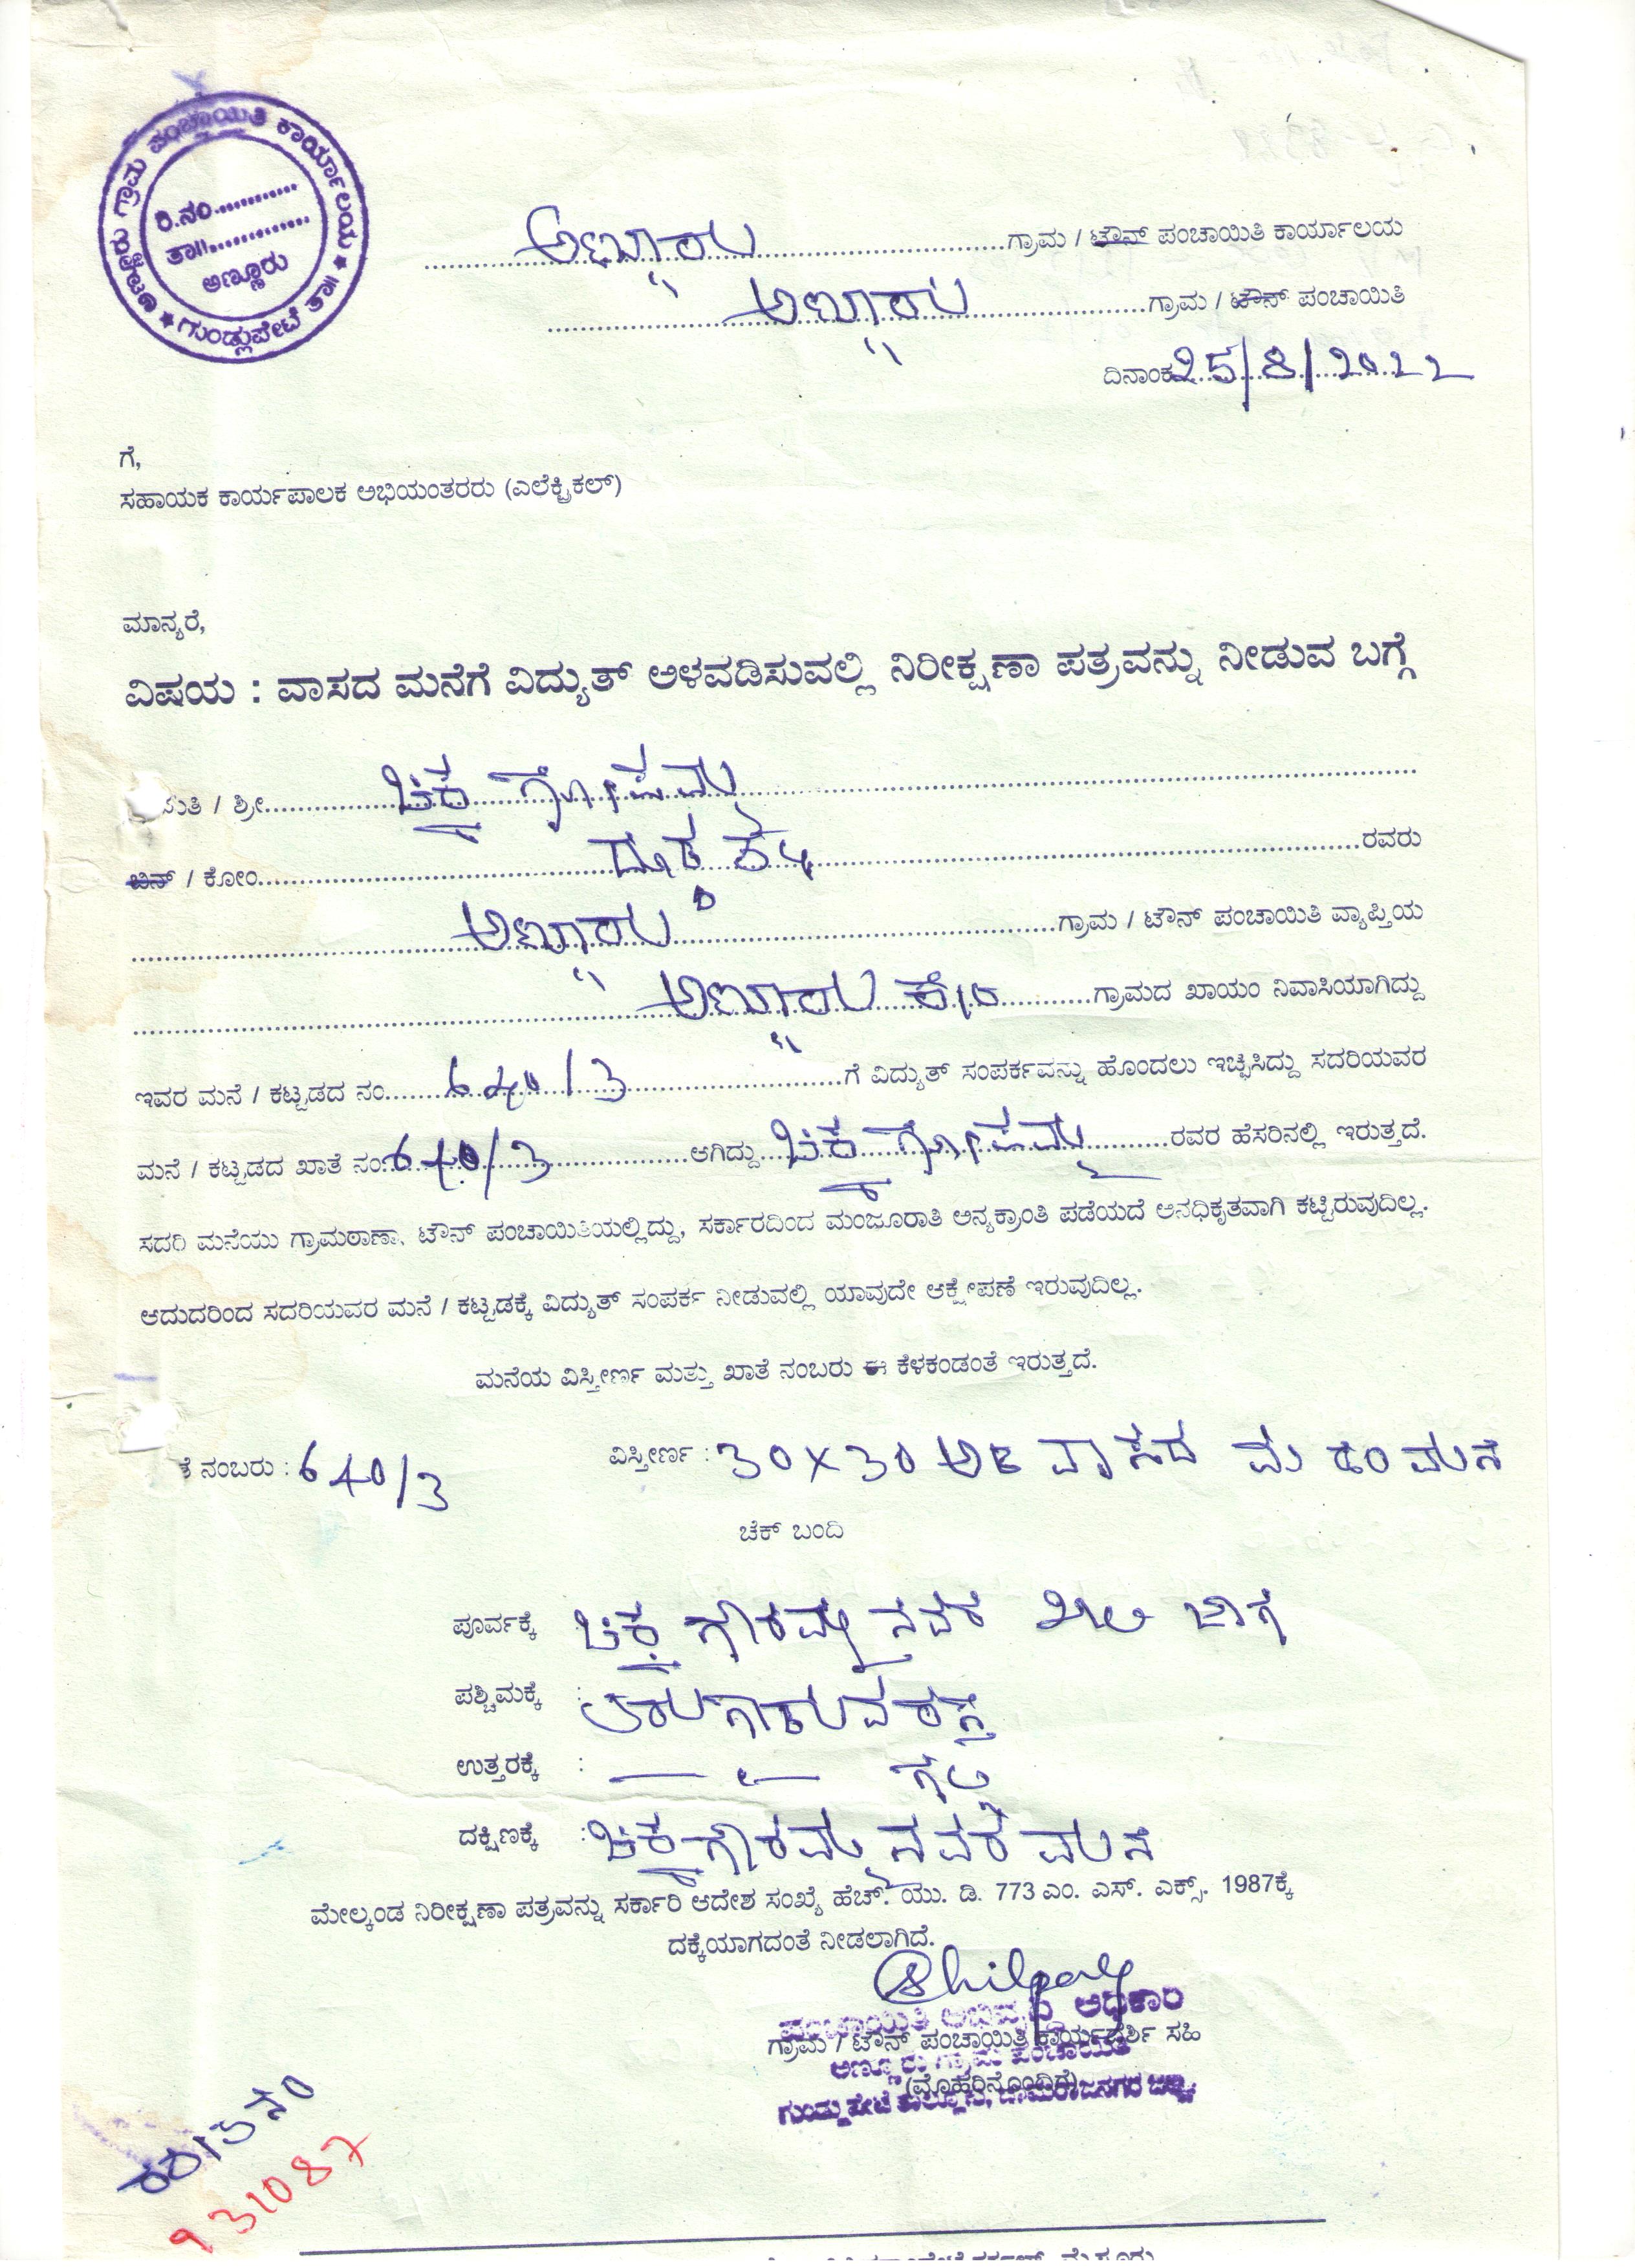 ಅಣ್ಣೂರು ಗ್ರಾಮ ಪಂಚಾಯಿತಿ ಕಾರ್ಯಾಲಯ ★ ಗುಂಡ್ಲುಪೇಟೆ ತಾ॥ ★
ರಿ.ನಂ............
ತಾ॥..............
ಅಣ್ಣೂರು
ಅಣ್ಣೂರು ಗ್ರಾಮ / ಟೌನ್ ಪಂಚಾಯಿತಿ ಕಾರ್ಯಾಲಯ
ಅಣ್ಣೂರು ಗ್ರಾಮ / ಟೌನ್ ಪಂಚಾಯಿತಿ
ದಿನಾಂಕ 25/8/2022
ಗೆ,
ಸಹಾಯಕ ಕಾರ್ಯಪಾಲಕ ಅಭಿಯಂತರರು (ಎಲೆಕ್ಟ್ರಿಕಲ್)
ಮಾನ್ಯರೆ,
ವಿಷಯ : ವಾಸದ ಮನೆಗೆ ವಿದ್ಯುತ್ ಅಳವಡಿಸುವಲ್ಲಿ ನಿರೀಕ್ಷಣಾ ಪತ್ರವನ್ನು ನೀಡುವ ಬಗ್ಗೆ
ಮತಿ / ಶ್ರೀ ಚಿಕ್ಕ
ಬಿನ್ / ಕೋಂ ರವರು
ಅಣ್ಣೂರು ಗ್ರಾಮ / ಟೌನ್ ಪಂಚಾಯಿತಿ ವ್ಯಾಪ್ತಿಯ
ಅಣ್ಣೂರು ಗ್ರಾಮದ ಖಾಯಂ ನಿವಾಸಿಯಾಗಿದ್ದು
ಇವರ ಮನೆ / ಕಟ್ಟಡದ ನಂ 640/3 ಗೆ ವಿದ್ಯುತ್ ಸಂಪರ್ಕವನ್ನು ಹೊಂದಲು ಇಚ್ಛಿಸಿದ್ದು ಸದರಿಯವರ
ಮನೆ / ಕಟ್ಟಡದ ಖಾತೆ ನಂ. 640/3 ಆಗಿದ್ದು ಚಿಕ್ಕ ರವರ ಹೆಸರಿನಲ್ಲಿ ಇರುತ್ತದೆ.
ಸದರಿ ಮನೆಯು ಗ್ರಾಮಠಾಣಾ. ಟೌನ್ ಪಂಚಾಯಿತಿಯಲ್ಲಿದ್ದು, ಸರ್ಕಾರದಿಂದ ಮಂಜೂರಾತಿ ಅನ್ಯಕ್ರಾಂತಿ ಪಡೆಯದೆ ಅನಧಿಕೃತವಾಗಿ ಕಟ್ಟಿರುವುದಿಲ್ಲ.
ಆದುದರಿಂದ ಸದರಿಯವರ ಮನೆ / ಕಟ್ಟಡಕ್ಕೆ ವಿದ್ಯುತ್ ಸಂಪರ್ಕ ನೀಡುವಲ್ಲಿ ಯಾವುದೇ ಆಕ್ಷೇಪಣೆ ಇರುವುದಿಲ್ಲ.
ಮನೆಯ ವಿಸ್ತೀರ್ಣ ಮತ್ತು ಖಾತೆ ನಂಬರು ಈ ಕೆಳಕಂಡಂತೆ ಇರುತ್ತದೆ.
ತೆ ನಂಬರು : 640/3 ವಿಸ್ತೀರ್ಣ : 30x30 ಅಡಿ ವಾಸದ ಮನೆ
ಚೆಕ್ ಬಂದಿ
ಪೂರ್ವಕ್ಕೆ : ಚಿಕ್ಕ ಗೌರಮ್ಮನವರ ಖಾಲಿ ಜಾಗ
ಪಶ್ಚಿಮಕ್ಕೆ : ತಿರುಗಾಡುವ ರಸ್ತೆ
ಉತ್ತರಕ್ಕೆ : — ‹— ಗಲ್ಲಿ
ದಕ್ಷಿಣಕ್ಕೆ : ಚಿಕ್ಕಗೌರಮ್ಮನವರ ಮನೆ
ಮೇಲ್ಕಂಡ ನಿರೀಕ್ಷಣಾ ಪತ್ರವನ್ನು ಸರ್ಕಾರಿ ಆದೇಶ ಸಂಖ್ಯೆ ಹೆಚ್. ಯು. ಡಿ. 773 ಎಂ. ಎಸ್. ಎಕ್ಸ್. 1987ಕ್ಕೆ
ದಕ್ಕೆಯಾಗದಂತೆ ನೀಡಲಾಗಿದೆ.
ಪಂಚಾಯಿತಿ ಅಭಿವೃದ್ಧಿ ಅಧಿಕಾರಿ
ಗ್ರಾಮ / ಟೌನ್ ಪಂಚಾಯಿತಿ ಕಾರ್ಯದರ್ಶಿ ಸಹಿ
ಅಣ್ಣೂರು ಗ್ರಾಮ ಪಂಚಾಯಿತಿ
(ಮೊಹರಿನೊಂದಿಗೆ)
ಗುಂಡ್ಲುಪೇಟೆ ತಾಲ್ಲೂಕು, ಚಾಮರಾಜನಗರ ಜಿಲ್ಲೆ
931087